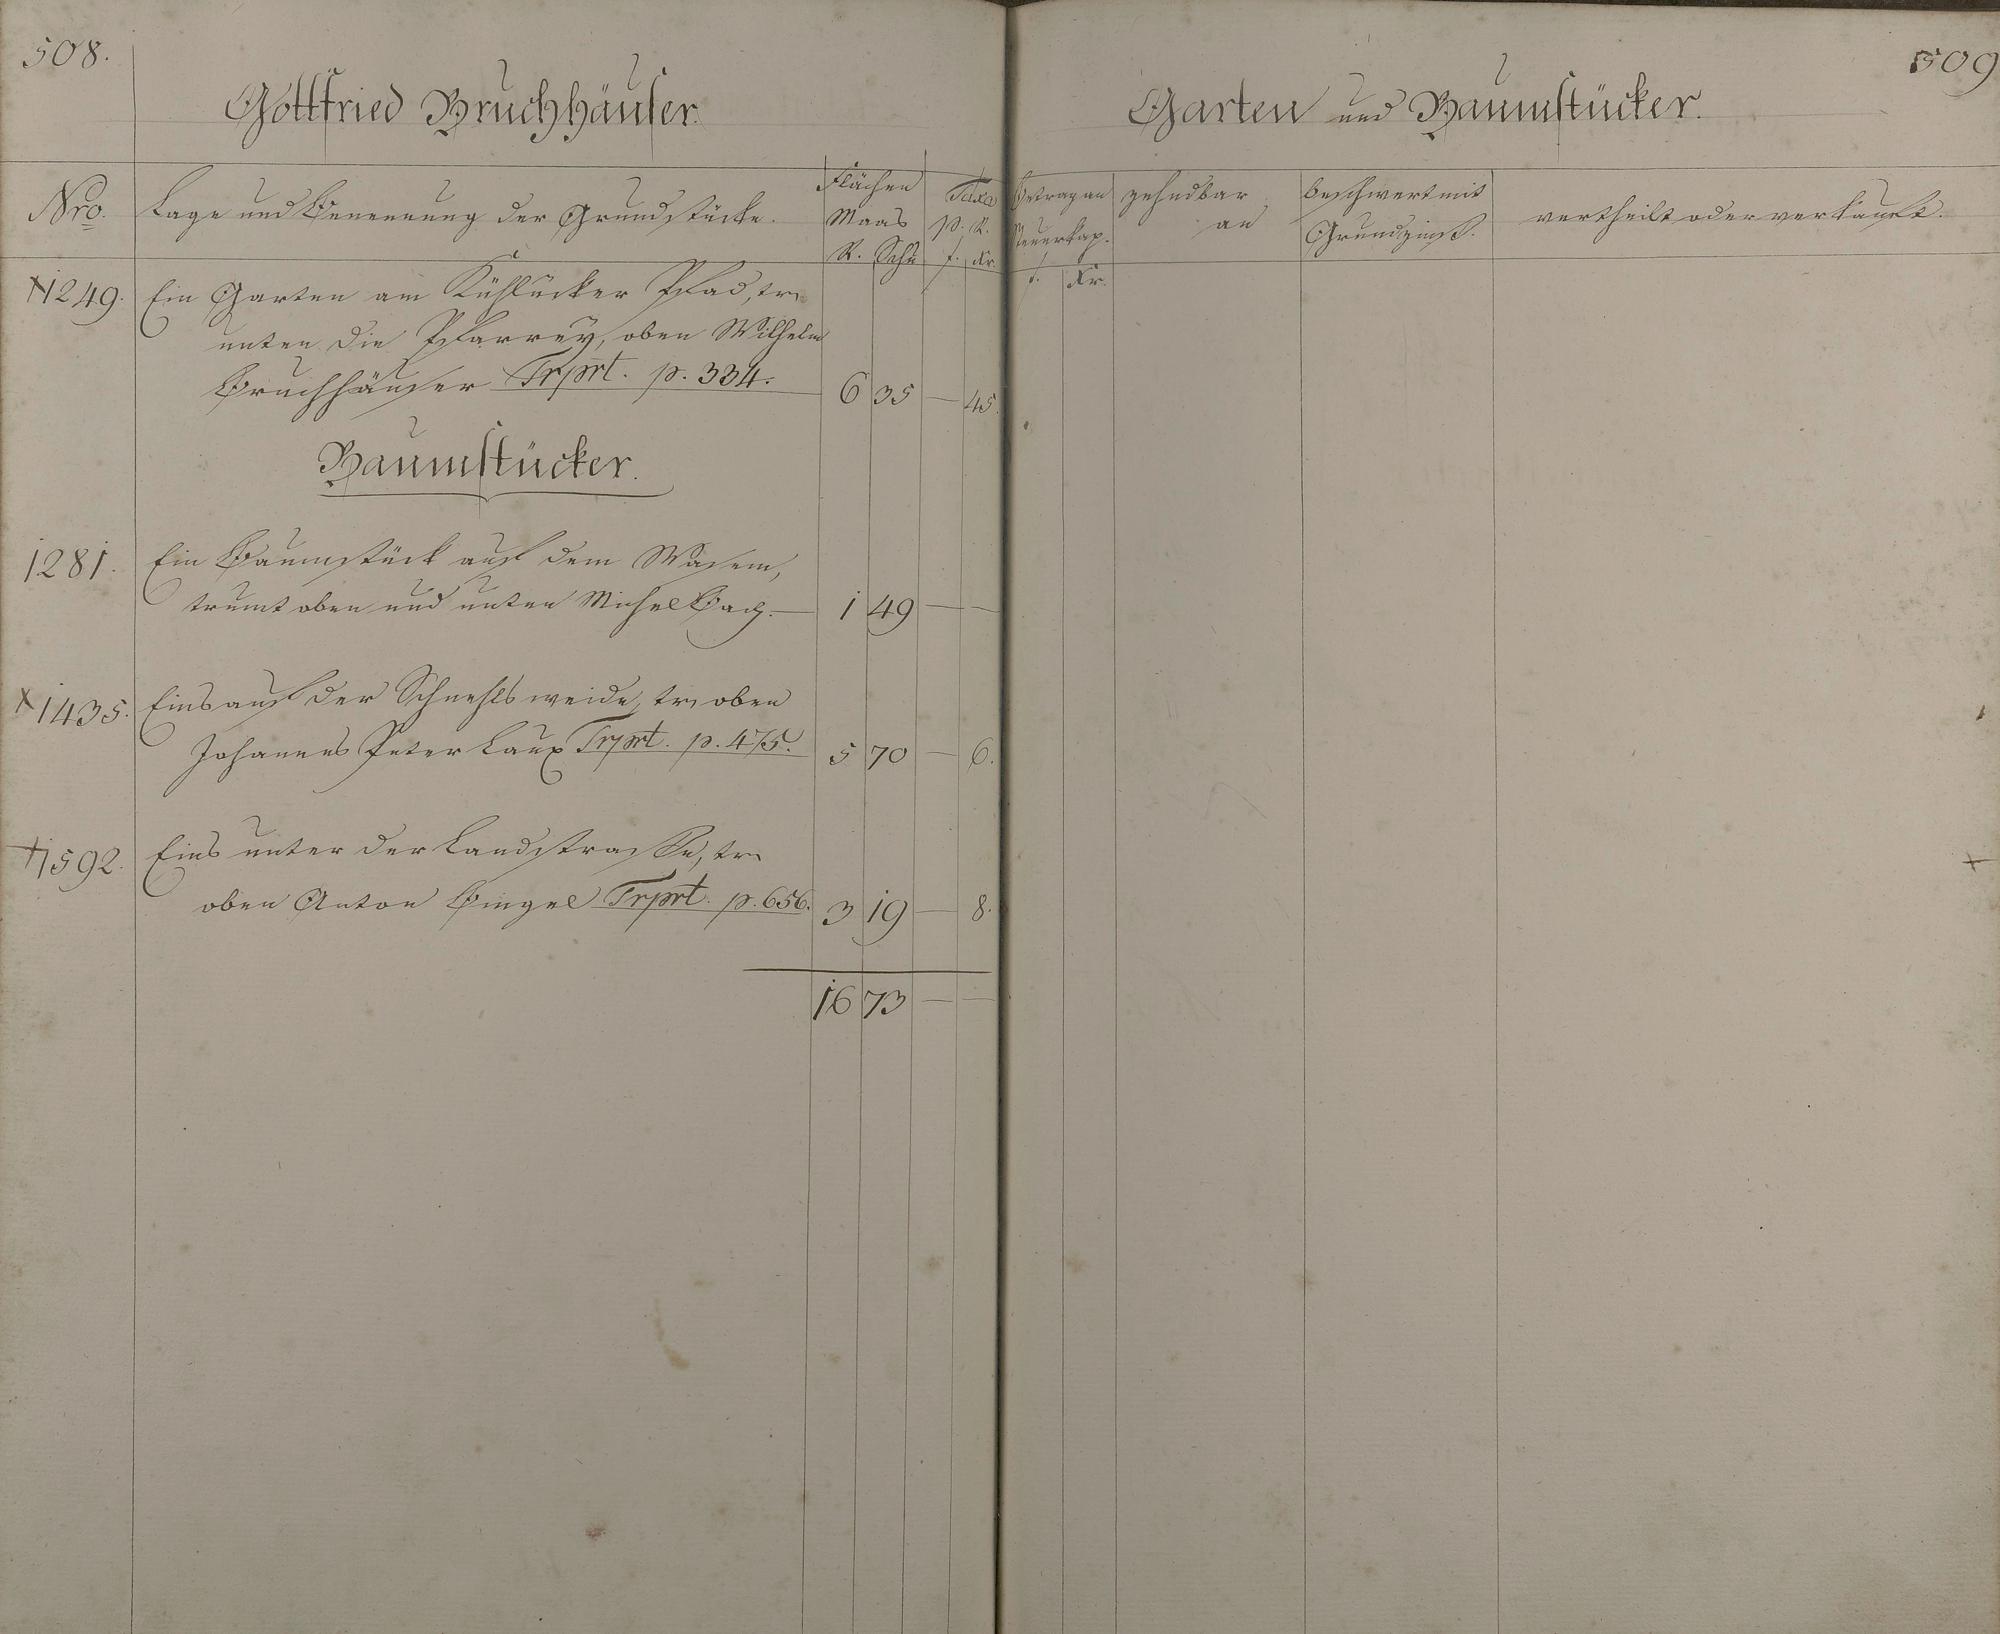 508.
Gottfried Bruchhäuser.
Nro. Lage und Benennung der Grundstücke. Flächen Maas R. Schu Taxa p. R. f. Kr.
1249. Ein Garten am Pfad, tr.
unten die Pfarrey, oben Wilhelm
Bruchhäuser Trprt. p. 334. 6 35 — 45.
Baumstücker.
1281. Ein Baumstück auf dem Wasem,
trumt oben und unten Michel Bach. — 1 49 — —
x 1435. Eins auf der Schnehlsweide, tr. oben
Johannes Peter Laux Trprt. p. 475. 5 70 — 6.
+ 1592. Eins unter der Landstrasse, tr.
oben Anton Bingel Trprt. p. 656. 3 19 — 8.
16 73 — —
509
Garten und Baumstücker.
Betrag an Steuerkap. f. Kr. zehndbar an beschwert mit Grundzinß. vertheilt oder verkauft.